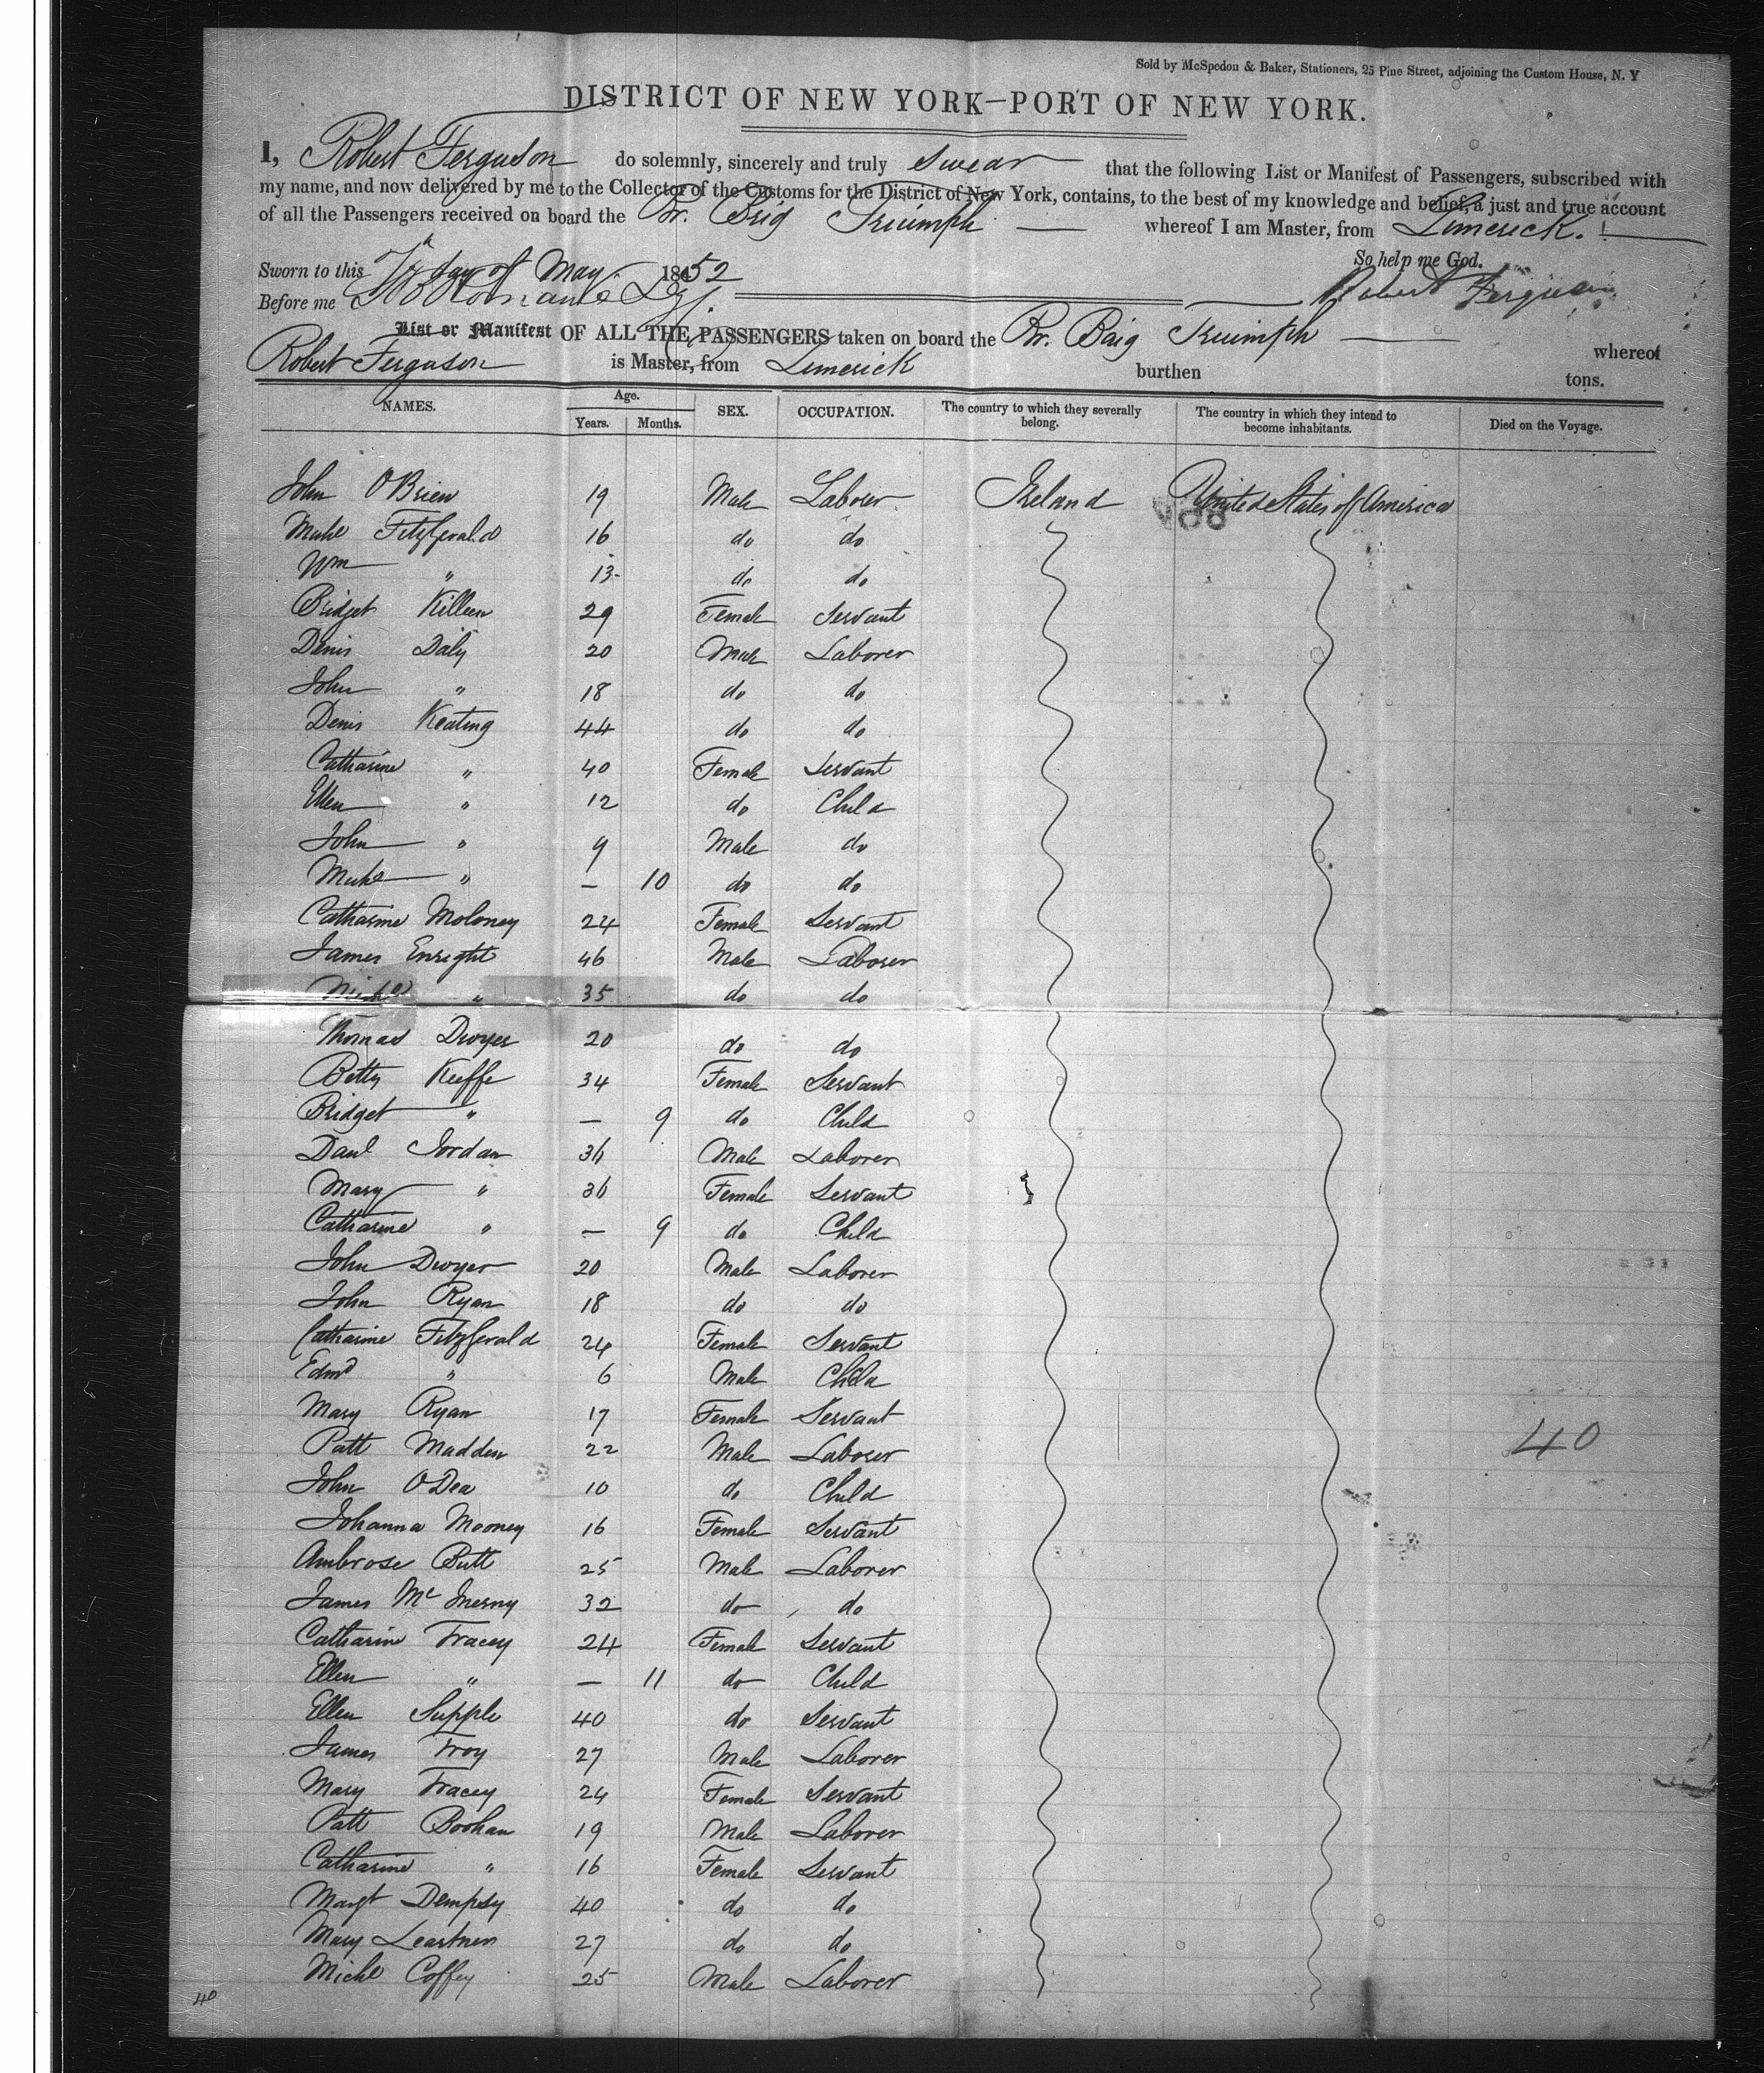 Sold by McSpedon & Baker, Stationers, 25 Pine Street, adjoining the Custom House, N. Y
DISTRICT OF NEW YORK—PORT OF NEW YORK.
I, Robert Ferguson do solemnly, sincerely and truly swear that the following List or Manifest of Passengers, subscribed with
my name, and now delivered by me to the Collector of the Customs for the District of New York, contains, to the best of my knowledge and belief, a just and true account
of all the Passengers received on board the Br. Brig Triumph whereof I am Master, from Limerick.
So help me God.
Sworn to this 7th day of May 1852
Before me Robert Ferguson
List or Manifest OF ALL THE PASSENGERS taken on board the Br. Brig Triumph whereof
Robert Ferguson is Master, from Limerick burthen tons.
NAMES. Age. Years. Months. SEX. OCCUPATION. The country to which they severally belong. The country in which they intend to become inhabitants. Died on the Voyage.
John O'Brien 19 Male Laborer Ireland United States of America
Michl FitzGerald 16 do do
Wm " 13 do do
Bridget Killeen 29 Female Servant
Denis Daly 20 Male Laborer
John " 18 do do
Denis Keating 44 do do
Catharine " 40 Female Servant
Ellen " 12 do Child
John " 9 Male do
Michl " — 10 do do
Catharine Moloney 24 Female Servant
James Enright 46 Male Laborer
Michl " 35 do do
Thomas Dwyer 20 do do
Betty Keeffe 34 Female Servant
Bridget " — 9 do Child
Danl Jordan 36 Male Laborer
Mary " 36 Female Servant
Catharine " — 9 do Child
John Dwyer 20 Male Laborer
John Ryan 18 do do
Catharine FitzGerald 24 Female Servant
Edmd " 6 Male Child
Mary Ryan 17 Female Servant
Patt Madden 22 Male Laborer 40
John O'Dea 10 do Child
Johanna Mooney 16 Female Servant
Ambrose Butt 25 Male Laborer
James Mc Inerny 32 do do
Catharine Tracey 24 Female Servant
Ellen " — 11 do Child
Ellen Supple 40 do Servant
James Troy 27 Male Laborer
Mary Tracey 24 Female Servant
Patt Boohan 19 Male Laborer
Catharine " 16 Female Servant
Margt Dempsy 40 do do
Mary 27 do do
Michl Coffey 25 Male Laborer
40